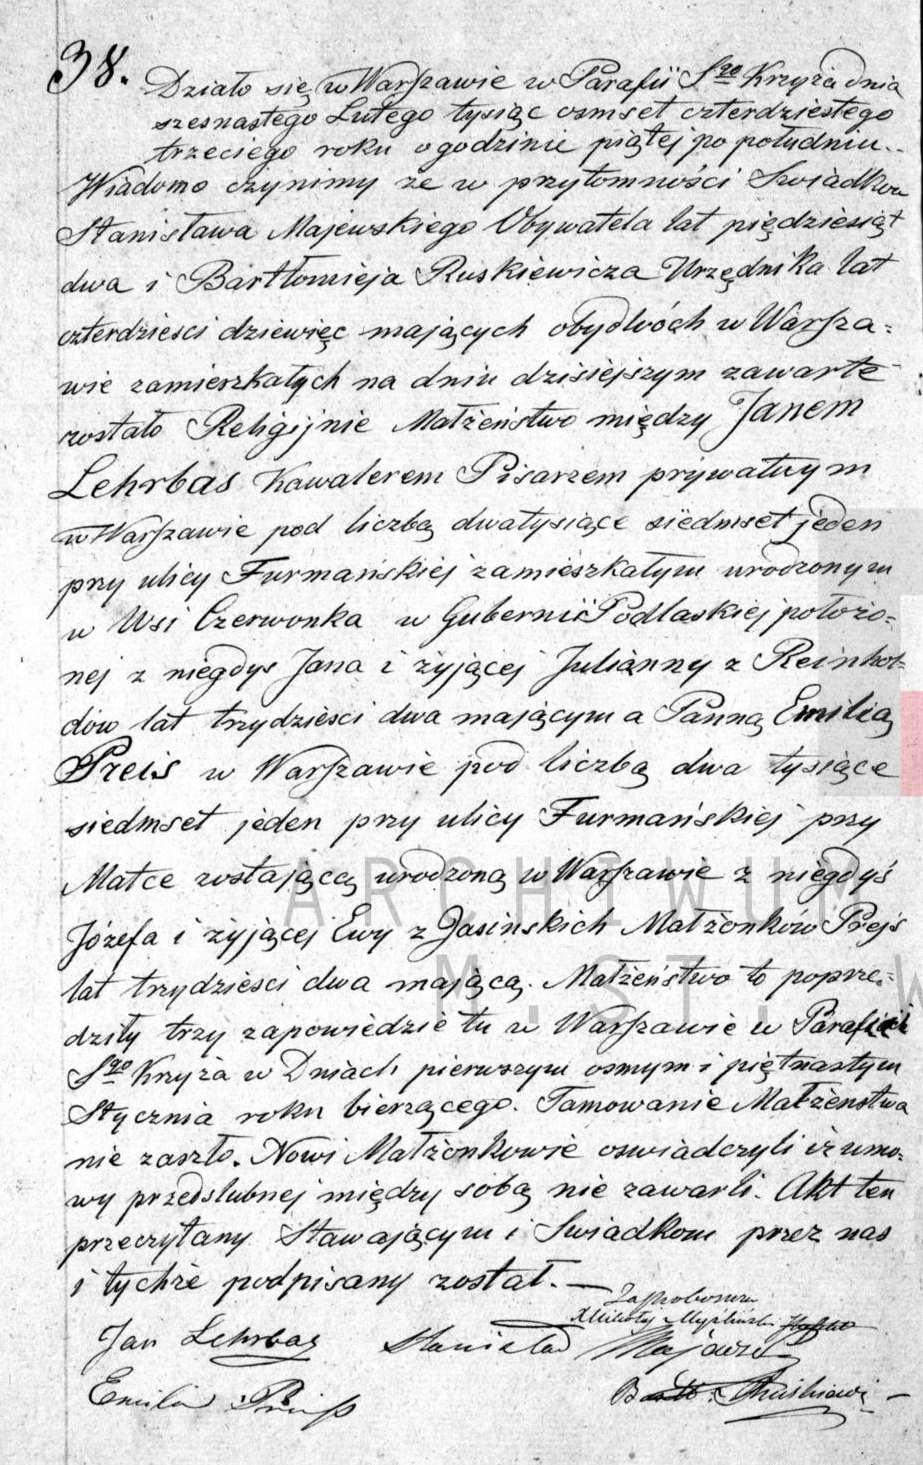 38.
Działo się w Warszawie w Parafii Sgo Krzyża dnia
szesnastego Lutego tysiąc osmset czterdziestego
trzeciego roku o godzinie piątej po południu..
Wiadomo czynimy że w przytomności Swiadków
Stanisława Majewskiego Obywatela lat pięćdziesiąt
dwa i Bartłomieja Ruskiewicza Urzędnika lat
czterdziesci dziewięc mających obydwóch w Warsza=
wie zamieszkałych na dniu dzisiejszym zawarte
zostało Religijnie Małżeństwo między Janem
Lehrbas Kawalerem Pisarzem prywatnym
w Warszawie pod liczbą dwatysiące siedmset jeden
przy ulicy Furmańskiej zamieszkałym urodzonym
w Wsi Czerwonka w Gubernii Podlaskiej położo=
nej z niegdys Jana i żyjącej Julianny z Reinhol=
dów lat trzydziesci dwa mającym a Panną Emilią
Preis w Warszawie pod liczbą dwa tysiące
siedmset jeden przy ulicy Furmańskiej przy
Matce zostającą urodzoną w Warszawie z niegdyś
Józefa i żyjącej Ewy z Jasińskich Małżonków Prejs
lat trzydziesci dwa mającą. Małżeństwo to poprze=
dziły trzy zapowiedzie tu w Warszawie w Parafii
Sgo Krzyża w Dniach pierwszym osmym i piętnastym
Stycznia roku bierzącego. Tamowanie Małżenstwa
nie zaszło. Nowi Małżonkowie oswiadczyli iż umo=
wy przedslubnej między sobą nie zawarli. Akt ten
przeczytany Stawającym i Swiadkom przez nas
i tychże podpisany został. —
Jan Lehrbas Stanisław Majewski
Emilia Preiss Bartł: Ruskiewicz
ARCHIWUM
M.ST.W